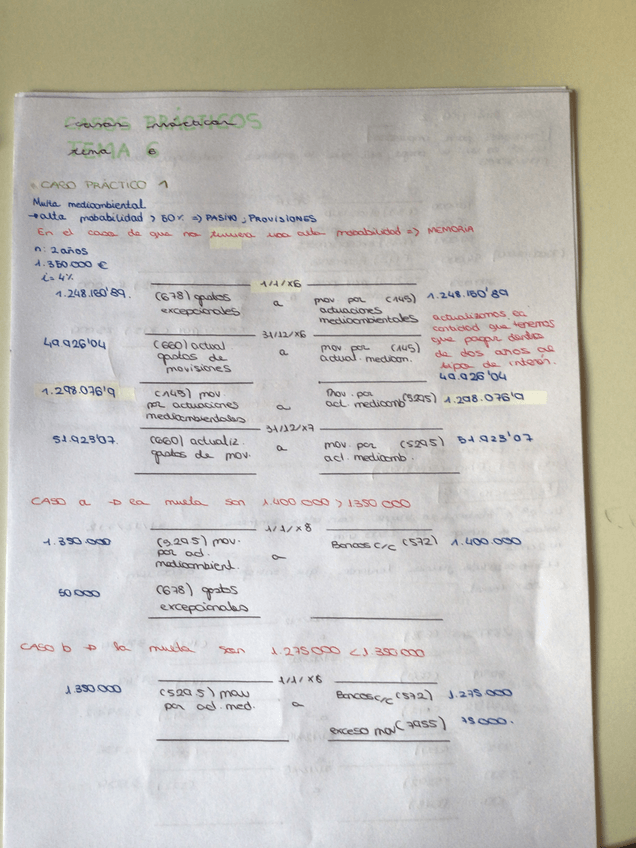 CASOS PRÁCTICOS
TEMA 6
CASO PRÁCTICO 1
Multa medioambiental
→ alta probabilidad > 50% => PASIVO, PROVISIONES
En el caso de que no tuviera una alta probabilidad => MEMORIA
n: 2 años
1.350.000 €
i = 4%
1/1/X6
1.248.150'89. (678) gastos excepcionales a prov por (145) actuaciones medioambientales 1.248.150'89
actualizamos la cantidad que tenemos que pagar dentro de dos años al tipo de interés.
31/12/X6
49.926'04 (660) actual gastos de provisiones a prov por (145) actual. medioam. 49.926'04
1.298.076'9 (145) prov por actuaciones medioambientales a Prov. por act. medioamb (5295) 1.298.076'9
31/12/X7
51.923'07. (660) actualiz. gastos de prov. a prov. por (5295) act. medioamb. 51.923'07
CASO a → la multa son 1.400.000 > 1350.000
1/1/X8
1.350.000 (5295) prov. por act. medioambient. a Bancos c/c (572) 1.400.000
50.000 (678) gastos excepcionales
CASO b → la multa son 1.275.000 < 1.350.000
1/1/X8
1.350.000 (5295) prov por act. med. a Bancos c/c (572) 1.275.000
exceso prov (7955) 75.000.